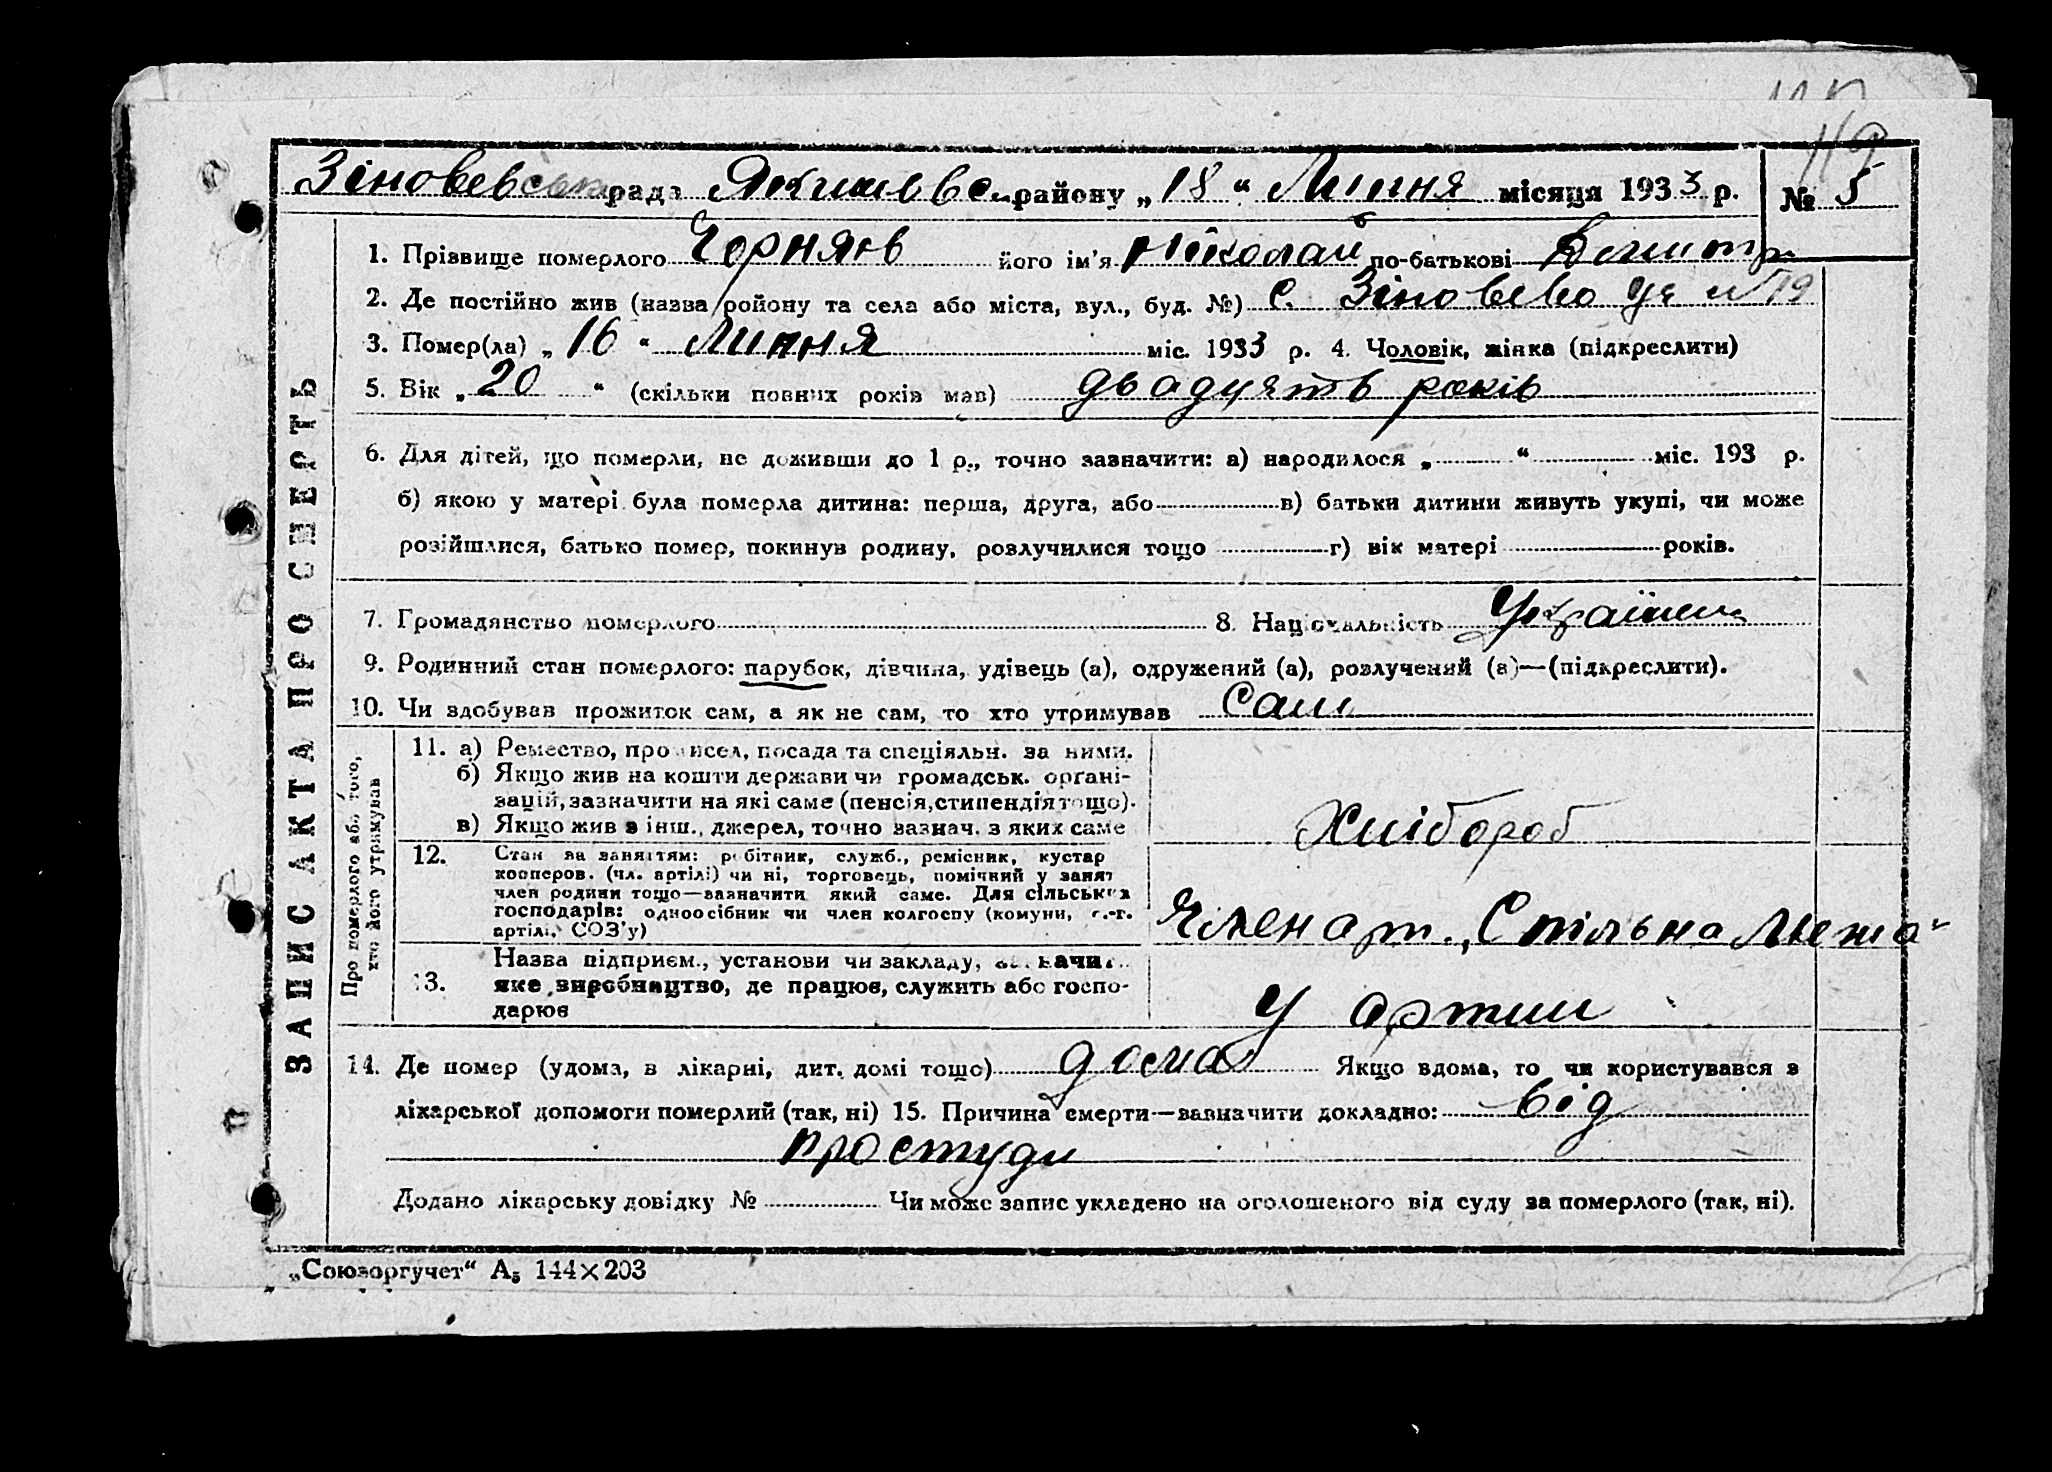 119
Зіновевськ рада Якимовс. району „18“ Липня місяця 1933 р. № 5
1. Прізвище померлого Чорняів його ім'я Ніколай по-батькові Дмитр.
2. Де постійно жив (назва ройону та села або міста, вул., буд. №) с. Зіновево
3. Помер(ла) „16“ Липня міс. 1933 р. 4. Чоловік, жінка (підкреслити)
5. Вік „20“ (скільки повних років мав) двадцять років
6. Для дітей, що померли, не доживши до 1 р., точно зазначити: а) народилося „ “ міс. 193 р.
б) якою у матері була померла дитина: перша, друга, або в) батьки дитини живуть укупі, чи може
розійшлися, батько помер, покинув родину, розлучилися тощо г) вік матері років.
7. Громадянство померлого 8. Національність Українец
9. Родинний стан померлого: парубок, дівчина, удівець (а), одружений (а), розлучений (а)—(підкреслити).
10. Чи здобував прожиток сам, а як не сам, то хто утримував Сам
ЗАПИС АКТА ПРО СМЕРТЬ
Про померлого або того, хто його утримував
11. а) Ремество, промисел, посада та спеціяльн. за ними.
б) Якщо жив на кошти держави чи громадськ. органі-
зацій, зазначити на які саме (пенсія, стипендія тощо).
в) Якщо жив з інш., джерел, точно зазнач. з яких саме
Хлібороб
12. Стан за заняттям: робітник, служб., ремісник, кустар
кооперов. (чл. артілі) чи ні, торговець, помічний у занят
член родини тощо—зазначити який саме. Для сільських
господарів: одноосібник чи член колгоспу (комуни, с.-г.
артілі, СОЗ'у)
Член арт. „Спільна Межа“
13. Назва підприєм., установи чи закладу, зазначит
яке виробництво, де працює, служить або госпо-
дарює
У артили
14. Де помер (удома, в лікарні, дит. домі тощо) дома Якщо вдома, то чи користувався з
лікарської допомоги померлий (так, ні) 15. Причина смерти—зазначити докладно: від
простуди
Додано лікарську довідку № Чи може запис укладено на оголошеного від суду за померлого (так, ні).
„Союзоргучет“ А5 144×203